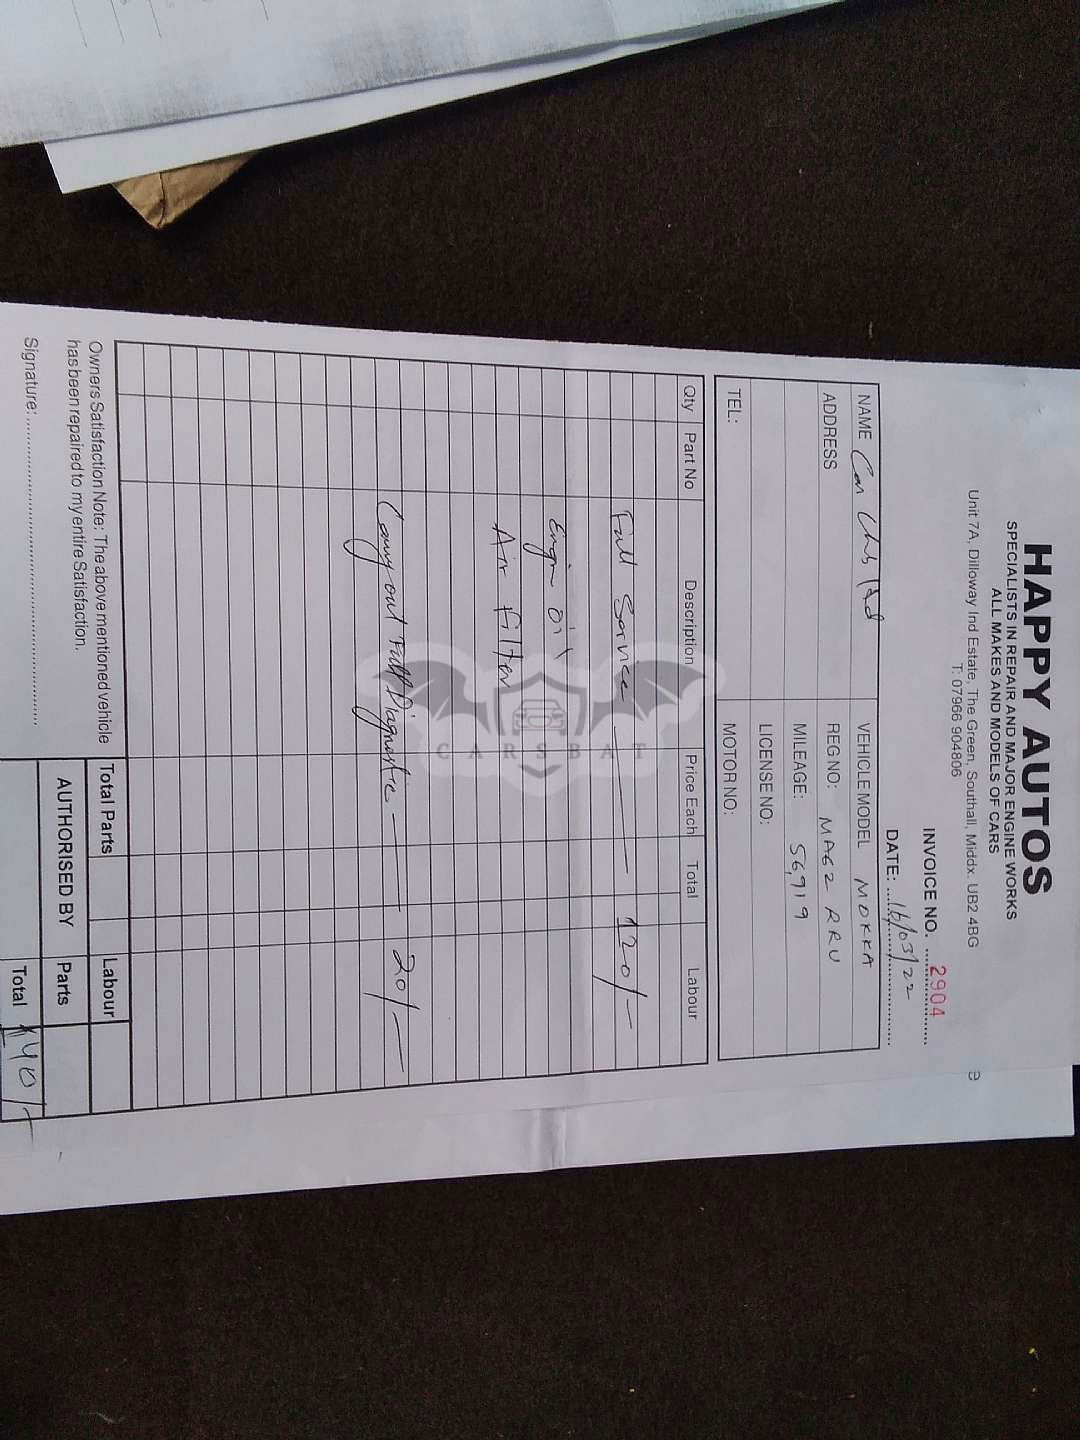 HAPPY AUTOS
SPECIALISTS IN REPAIR AND MAJOR ENGINE WORKS
ALL MAKES AND MODELS OF CARS
Unit 7A, Dilloway Ind Estate, The Green, Southall, Middx. UB2 4BG
T: 07966 904806
INVOICE NO. 2904
DATE: 16/03/22
NAME Car Ltd
VEHICLE MODEL MOKKA
ADDRESS
REG NO: MA62 RRU
MILEAGE: 56,919
LICENSE NO:
TEL:
MOTOR NO:
Qty Part No Description Price Each Total Labour
Full Service 120/-
Engine oil
Air filter
Carry out Full Diagnostic 20/-
CARSBAT
Owners Satisfaction Note: The above mentioned vehicle
has been repaired to my entire Satisfaction.
Signature:
Total Parts
Labour
AUTHORISED BY
Parts
Total 140/-